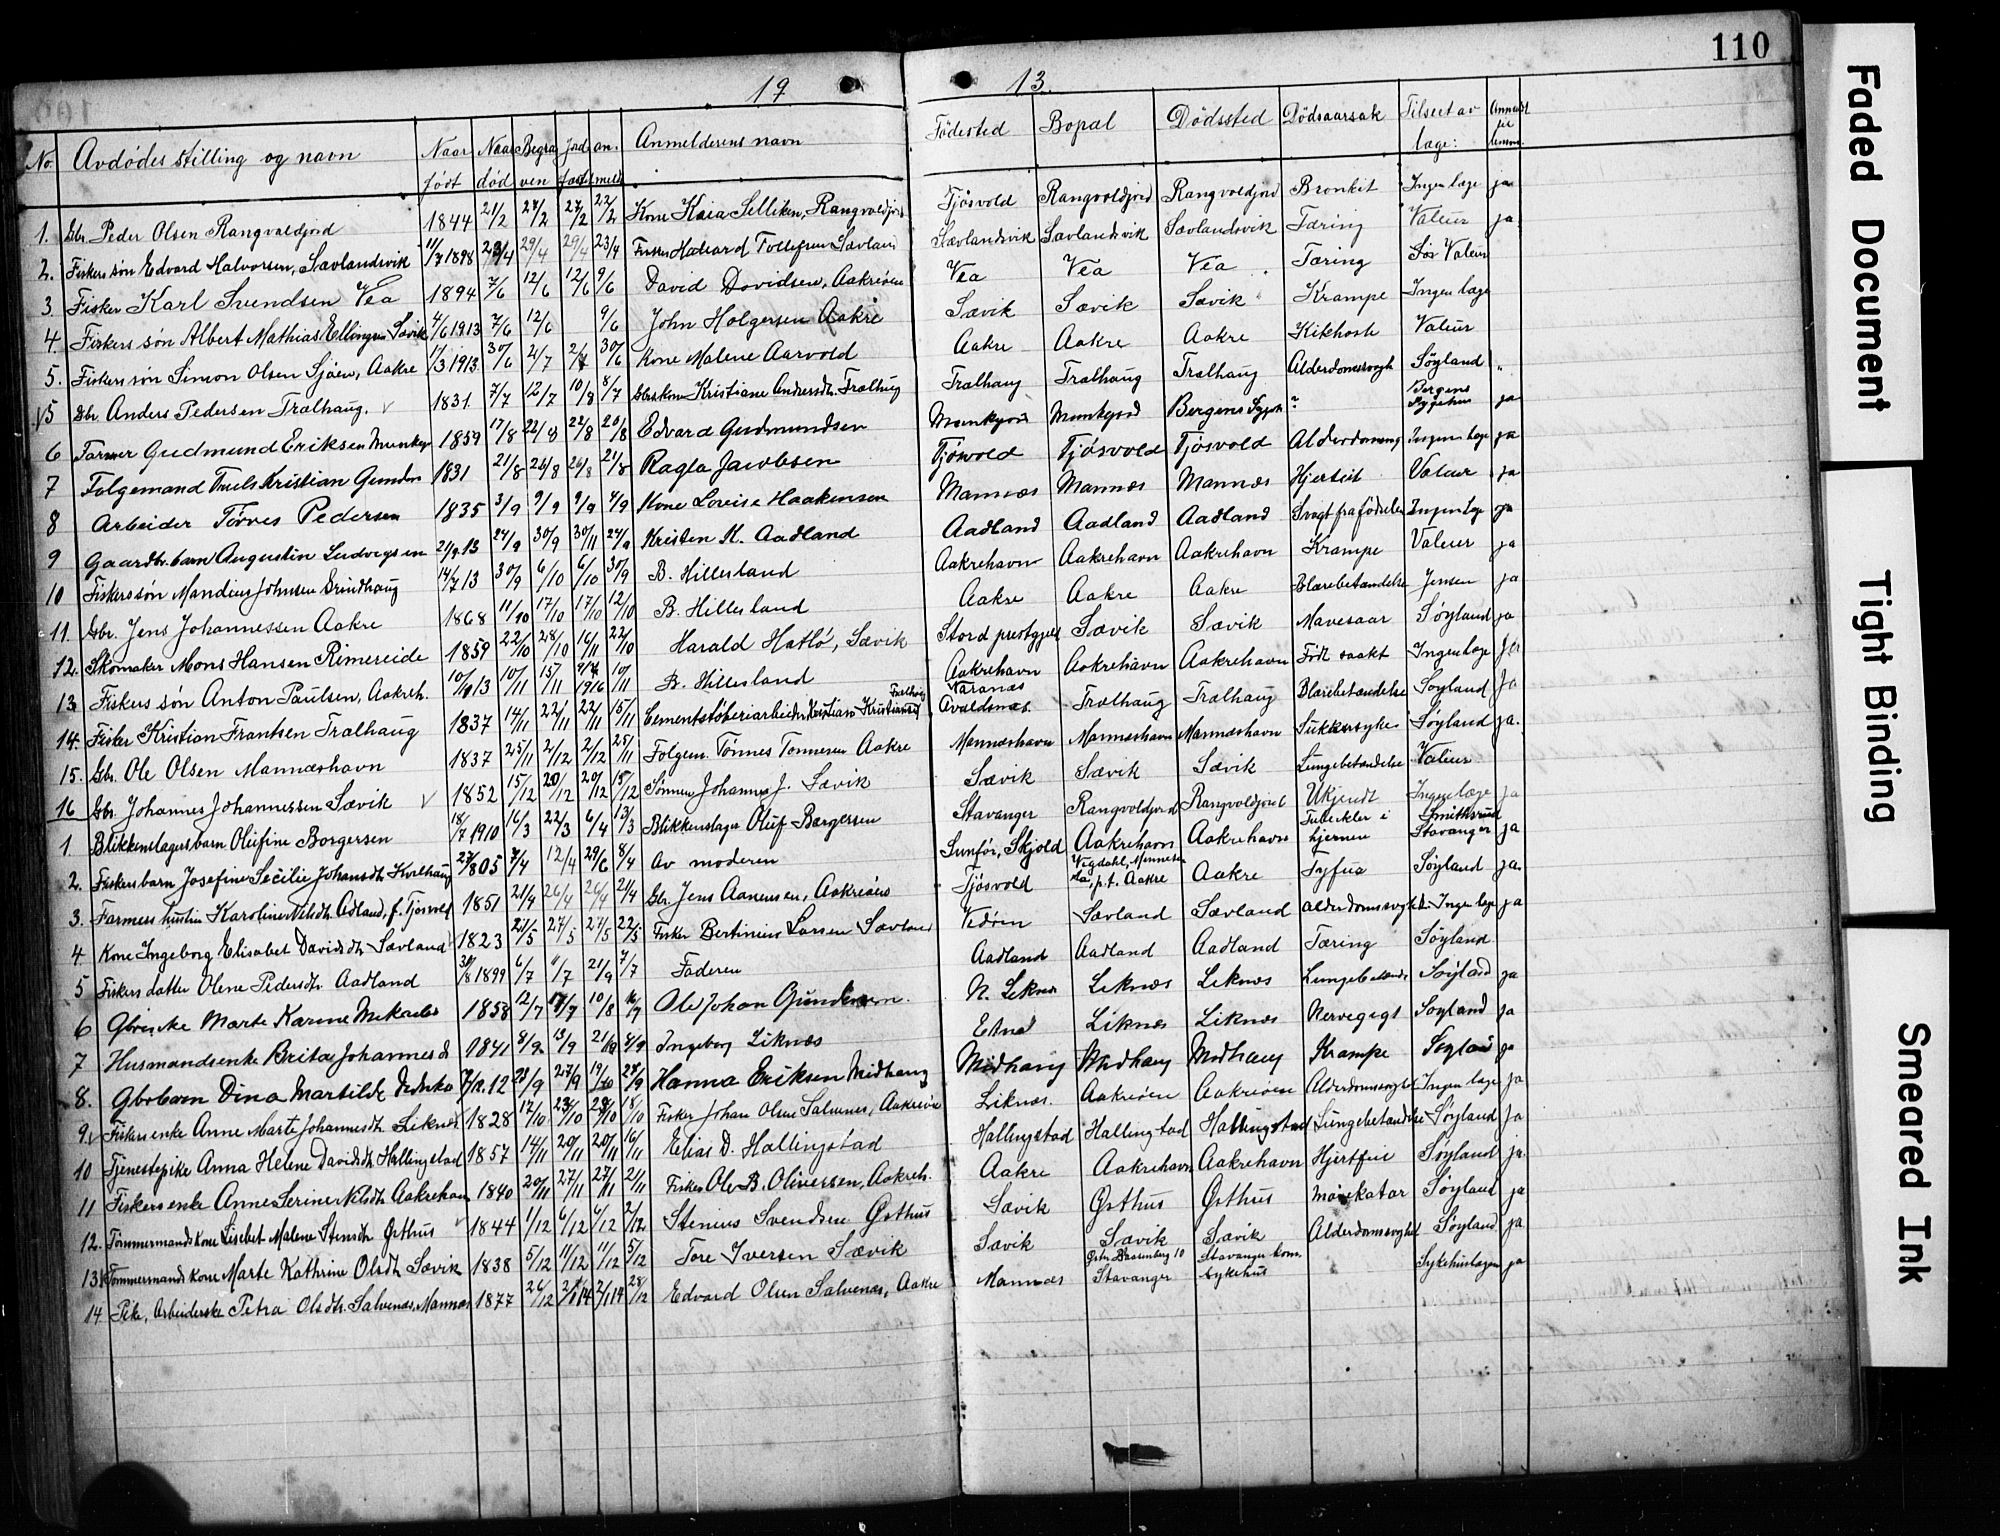 110
19 13.
No. Avdødes stilling og navn Naar født Naar død Begra ven Jord fæst an. meldt Anmelderens navn Fødested Bopæl Dødssted Dødsaarsak Tilseet av læge: Anmeldt
1. Gbr. Peder Olsen Rangvaldjord 1844 21/2 27/2 27/2 22/2 Kone Kaia Selliken, Rangvaldjord Tjøsvold Rangvoldjord Rangvoldjord Bronkit Ingen læge ja
2. Fiskers søn Edvard Halvorsen, Sævlandsvik 11/7 1898 23/4 29/4 29/4 23/4 Fisker Halvard Tollefsen Sævland Sævlandsvik Sævlandsvik Sævlandsvik Tæring Valeur ja
3 Fisker Karl Svendsen Vea 1894 7/6 12/6 12/6 9/6 David Davidsen, Aakreøen Vea Vea Vea Tæring Søs Valeur
4. Fiskers søn Albert Mathias Ellingsen Sævik 4/6 1913 7/6 12/6 9/6 John Holgersen Aakre Sævik Sævik Sævik Krampe Ingen læge
5. Fiskers søn Simon Olsen Sjøen, Aakre 11/3 1913 30/6 2/7 2/7 30/6 Kone Malene Aarvold Aakre Aakre Aakre Kikhoste Valeur
5 Gbr. Anders Pedersen Trælhaug. 1831 7/7 12/7 10/8 8/7 Gbrskone Kristiane Andersdtr. Trælhaug Trælhaug Trælhaug Trælhaug Alderdomssvagh Søyland "
6 Farmer Gudmund Eriksen Munkejord 1859 17/8 22/8 22/8 20/8 Edvard Gudmundsen Munkejord Munkejord Bergens Sygeh ? Bergens Sygehus ja
7 Folgemand Truels Kristian Gunders 1831 21/8 26/8 26/8 21/8 Ragla Jacobsen Tjøsvold Tjøsvold Tjøsvold Alderdomssvag Ingen læge ja
8 Arbeider Tørres Pedersen 1835 3/9 9/9 9/9 4/9 Kone Lovise Haakensen Mannæs Mannæs Mannæs Hjertefeil Valeur ja
9 Gaardbr. barn Augustin Ludvigsen 21/9 13 24/9 30/9 30/11 24/9 Kristen K. Aadland Aadland Aadland Aadland Svagt fra fødselen Ingen læge ja
10 Fiskers søn Mandius Johnsen Grindhaug 14/7 13 30/9 6/10 6/10 30/9 B. Hillesland Aakrehavn Aakrehavn Aakrehavn Krampe Valeur ja
11. Gbr. Jens Johannessen Aakre 1868 11/10 17/10 17/10 12/10 B. Hillesland Aakre Aakre Aakre Blærebetændelse Jensen ja
12. Skomaker Mons Hansen Rimereide 1859 22/10 28/10 16/11 22/10 Harald Hatlø, Sævik Stord prestgjeld Sævik Sævik Mavesaar Søyland ja
13 Fiskers søn Anton Paulsen, Aakreh. 10/11 13 10/11 15/11 1916 10/11 B. Hillesland Aakrehavn Aakrehavn Aakrehavn Født svakt Ingen læge ja
14. Fisker Kristian Frantsen Trælhaug 1837 14/11 22/11 22/11 15/11 Cementstøberiarbeider Kristian Kristiansen Trælhaug Avaldsnæs Trælhaug Trælhaug Blærebetændelse Søyland ja
15. Gbr. Ole Olsen Mannæshavn 1837 25/11 2/12 2/12 25/11 Folgem. Tønnes Tønnesen Aakre Mannæshavn Mannæshavn Mannæshavn Sukkersyke Søyland ja.
16 Gbr. Johannes Johannessen Sævik 1852 15/12 20/12 20/12 15/12 Sønnen Johannes J. Sævik Sævik Sævik Sævik Lungebetændelse Valeur
1 Blikkenslagers barn Oleifine Borgersen 18/7 1910 16/3 22/3 6/4 13/3 Blikkenslager Oluf Borgersen Stavanger Rangvoldjord Rangvoldjord Ukjendt Ingen læge ja
2. Fiskers barn Josefine Cecilie Johansdtr. Kvilhaug 27/8 05 7/4 12/4 29/6 8/4 Av moderen Sunfør, Skjold Aakrehavn Aakrehavn Tuberkler i hjernen Smithsrud Stavanger ja
3. Farmers hustru Karoline Nilsdtr. Adland, f. Tjøsvold 1851 21/4 26/4 26/4 21/4 Gbr. Jens Aanensen, Aakreøen Tjøsvold Vigdahl, Minnesota, p.t. Aakre Aakre Tyfus Søyland ja.
4 Kone Ingeborg Elisabet Davidsdtr. Sævland 1823 21/5 27/5 27/5 22/5 Fisker Bertinius Larsen Sævland Kvorn Sævland Sævland Alderdomssvaghed Ingen læge ja
5 Fiskers datter Olene Pedersdtr. Aadland 30/8 1899 6/7 11/7 21/9 7/7 Faderen Aadland Aadland Aadland Tæring Søyland
6 Gbrenke Marte Karine Mekaels 1858 12/7 17/7 10/8 16/7 Ole Johan Gundersen. N. Liknes Liknæs Liknæs Lungebetænd. Søyland ja
7 Husmandsenke Brita Johannesd 1841 8/9 13/9 21/9 8/9 Ingeborg Liknæs Etne Liknæs Liknæs Nervegigt Søyland ja
8. Gbrbarn Dina Martilde 12 23/9 27/9 19/10 24/9 Hanna Eriksen Midhaug Midhaug Midhaug Midhaug Krampe Søyland ja
9. Fiskers enke Anne Marte Johannesdtr. Liknes 1828 17/10 23/10 23/10 18/10 Fisker Johan Olsen Salvenes, Aakreøen Liknæs. Aakreøen Aakreøen Alderdomssvaghed Ingen læge ja
10 Tjenestepike Anna Helene Davidsdtr. Hallingstad 1857 14/11 20/11 20/11 16/11 Elias D. Hallingstad Hallingstad Hallingstad Hallingstad Lungebetændelse Søyland ja
11 Fiskers enke Anne Serine Nilsdtr. Aakrehavn 1840 20/11 27/11 27/11 21/11 Fisker Ole B. Oliversen, Aakreh. Aakre Aakrehavn Aakrehavn Hjertefeil Søyland ja.
12. Tømmermands kone Lisebet Malene Stensdtr Østhus 1844 1/12 6/12 6/12 2/12 Stenius Svendsen Østhus Sævik Østhus Østhus Mavekatar Søyland ja
13 Tømmermands kone Marte Kathrine Olsdtr Sævik 1838 5/12 11/12 11/12 5/12 Tore Iversen Sævik Sævik Sævik Sævik Alderdomssvaghed Søyland ja
14 Pike, Arbeiderske Petra Olsdtr. Salvenæs, Mannæs 1877 26/12 2/1 14 2/1 14 28/12 Edvard Olsen Salvenes, Aakre Mannæs Stavanger Stavanger kom. sykehus Sykehuslægen ja
Faded Document
Tight Binding
Smeared Ink